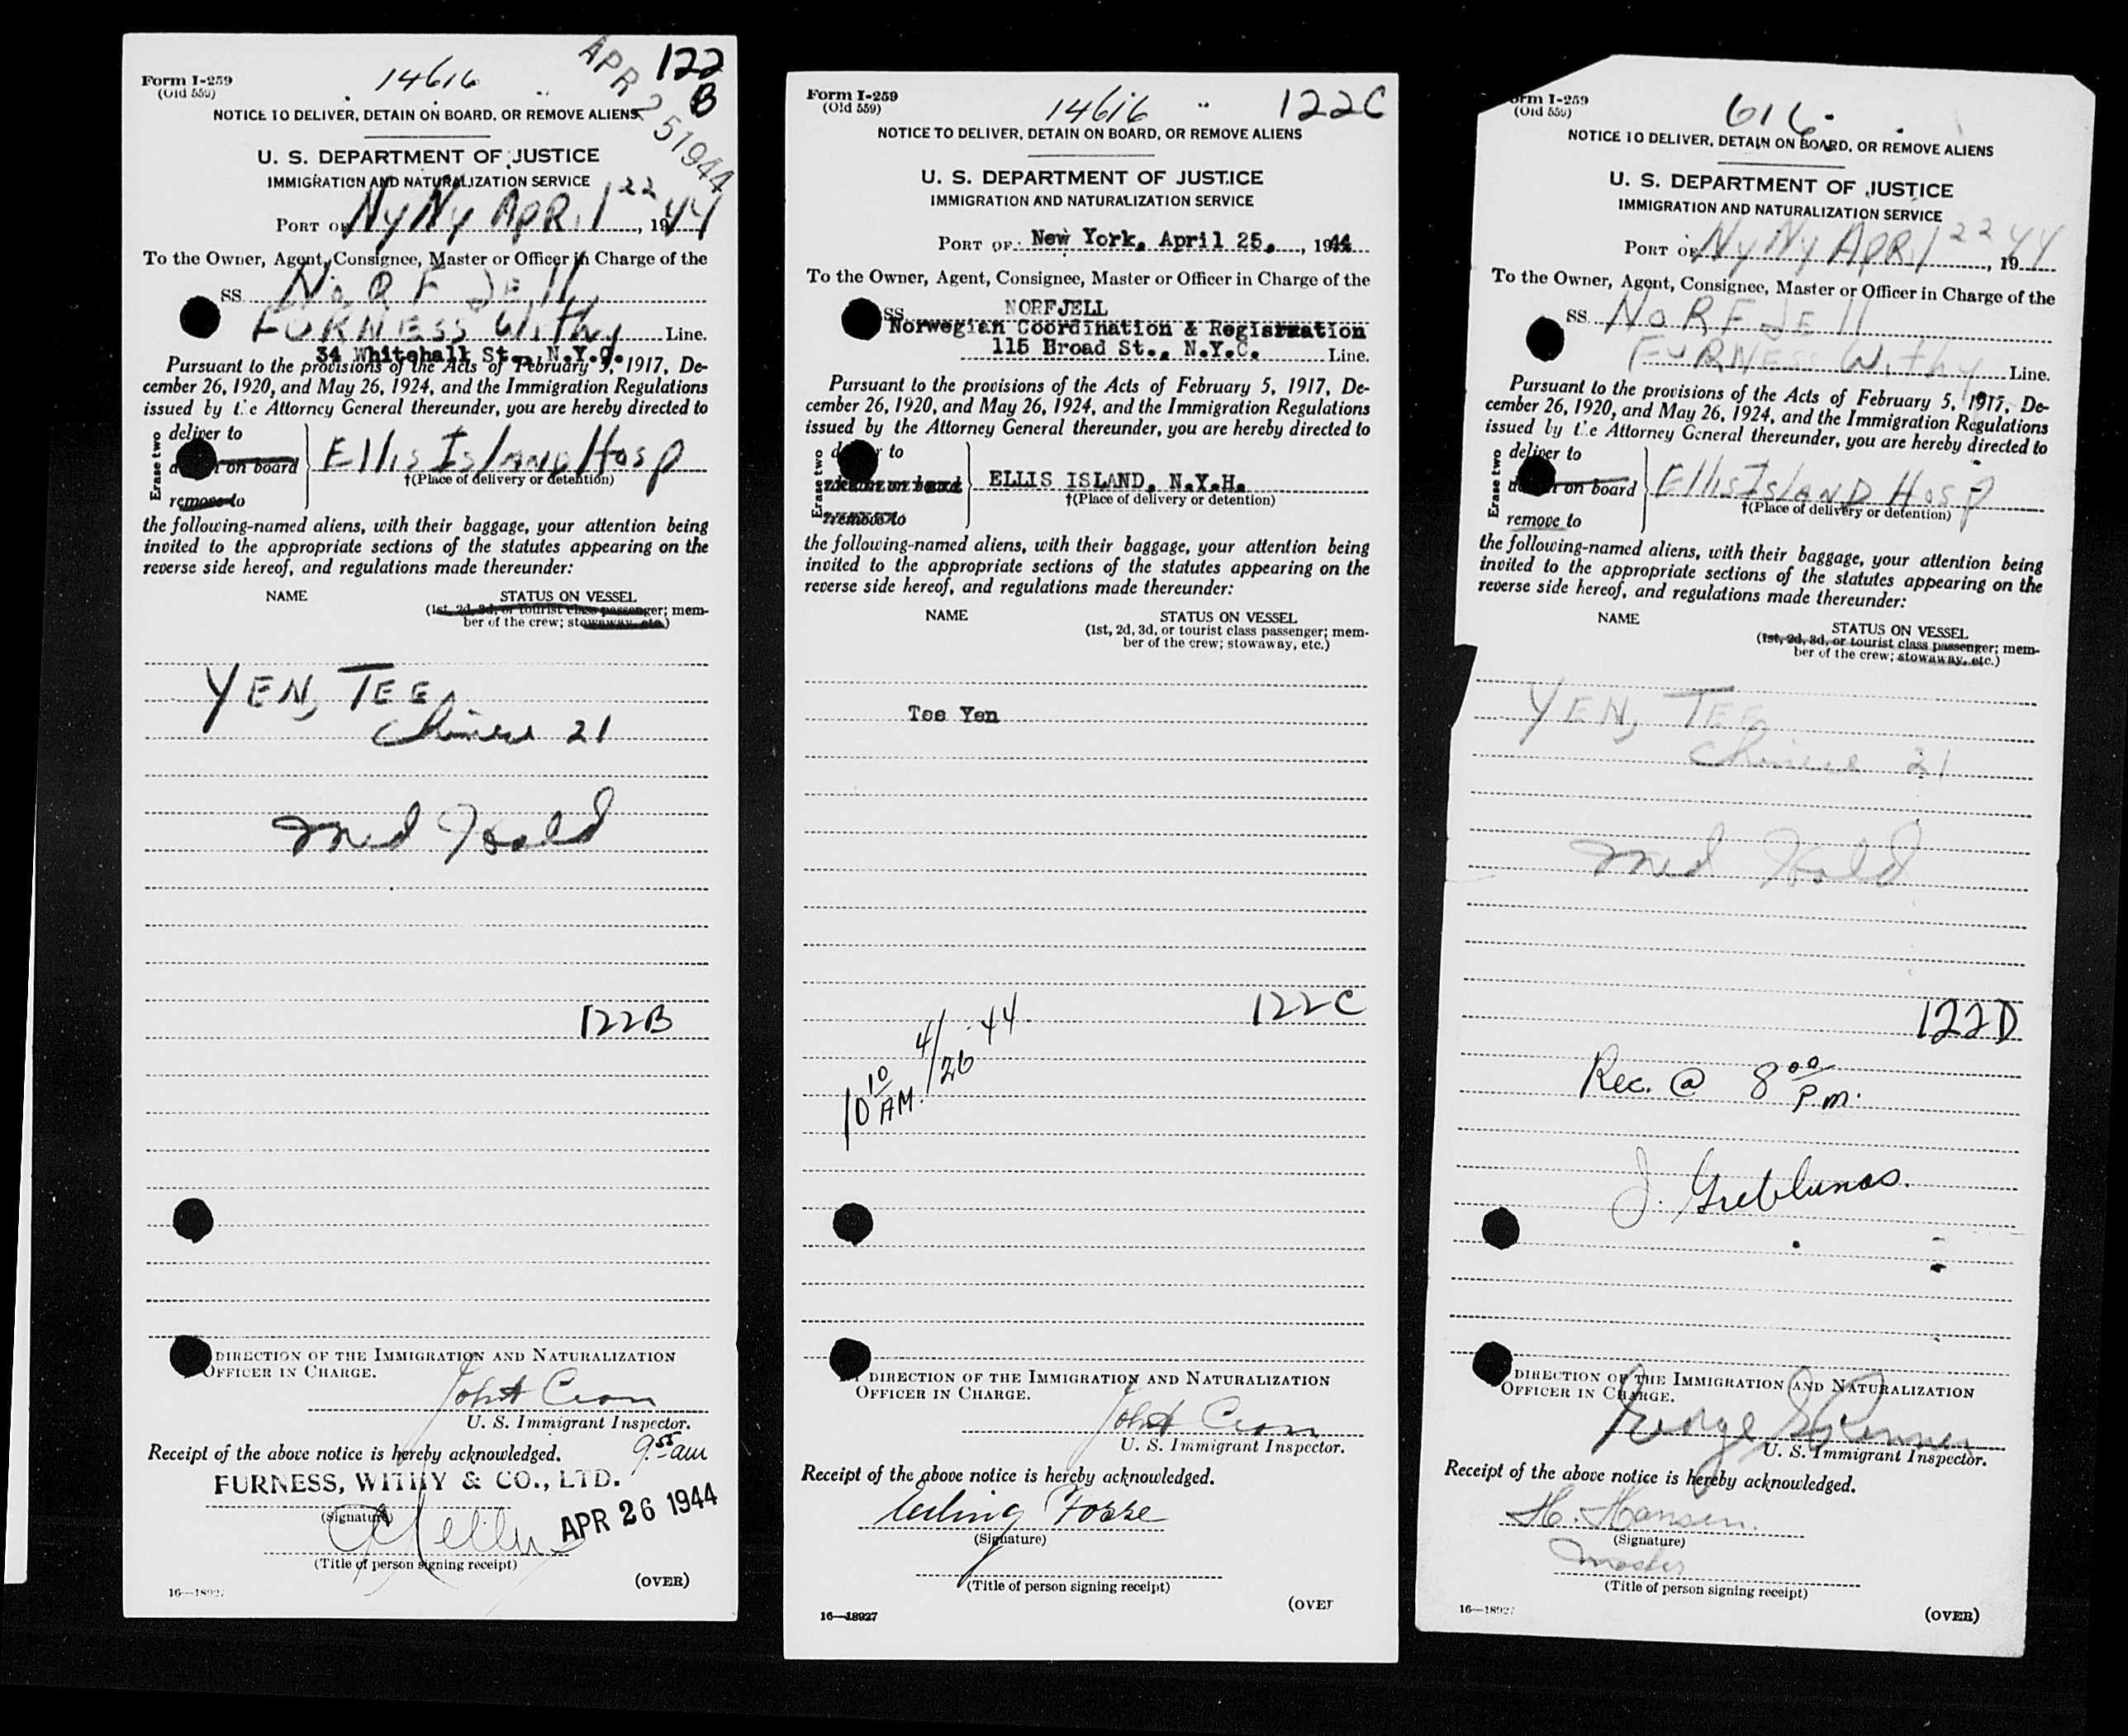 Form I-259
(Old 559)
14616
122
B
APR 25 1944
NOTICE TO DELIVER, DETAIN ON BOARD, OR REMOVE ALIENS
U. S. DEPARTMENT OF JUSTICE
IMMIGRATION AND NATURALIZATION SERVICE
PORT OF NY NY APRIL 22, 1944
To the Owner, Agent, Consignee, Master or Officer in Charge of the
SS. NORFJEll
FURNESS Withy Line.
34 Whitehall St., N.Y.C.
Pursuant to the provisions of the Acts of February 5, 1917, De-
cember 26, 1920, and May 26, 1924, and the Immigration Regulations
issued by the Attorney General thereunder, you are hereby directed to
Erase two
deliver to
on board
remove to
Ellis IslAND Hosp
†(Place of delivery or detention)
the following-named aliens, with their baggage, your attention being
invited to the appropriate sections of the statutes appearing on the
reverse side hereof, and regulations made thereunder:
NAME STATUS ON VESSEL
(1st, 2d, 3d, or tourist class passenger; mem-
ber of the crew; stowaway, etc.)
YEN, TEE
Chinese 21
Med Hold
122B
DIRECTION OF THE IMMIGRATION AND NATURALIZATION
OFFICER IN CHARGE.
John A Cron
U. S. Immigrant Inspector.
Receipt of the above notice is hereby acknowledged. 9.55 am
FURNESS, WITHY & CO., LTD.
(Signature)
APR 26 1944
(Title of person signing receipt)
(OVER)
16—18927
Form I-259
(Old 559)
14616 122C
NOTICE TO DELIVER, DETAIN ON BOARD, OR REMOVE ALIENS
U. S. DEPARTMENT OF JUSTICE
IMMIGRATION AND NATURALIZATION SERVICE
PORT OF New York, April 25, 1944
To the Owner, Agent, Consignee, Master or Officer in Charge of the
SS NORFJELL
Norwegian Coordination & Registration
115 Broad St., N.Y.C. Line.
Pursuant to the provisions of the Acts of February 5, 1917, De-
cember 26, 1920, and May 26, 1924, and the Immigration Regulations
issued by the Attorney General thereunder, you are hereby directed to
Erase two
to
remove to
ELLIS ISLAND, N.Y.H.
†(Place of delivery or detention)
the following-named aliens, with their baggage, your attention being
invited to the appropriate sections of the statutes appearing on the
reverse side hereof, and regulations made thereunder:
NAME STATUS ON VESSEL
(1st, 2d, 3d, or tourist class passenger; mem-
ber of the crew; stowaway, etc.)
Tee Yen
122C
10 10 AM. 4/26 44
DIRECTION OF THE IMMIGRATION AND NATURALIZATION
OFFICER IN CHARGE.
John A Cron
U. S. Immigrant Inspector.
Receipt of the above notice is hereby acknowledged.
Erling Fosse
(Signature)
(Title of person signing receipt)
(OVER
16—18927
orm I-259
(Old 559)
616
NOTICE TO DELIVER, DETAIN ON BOARD, OR REMOVE ALIENS
U. S. DEPARTMENT OF JUSTICE
IMMIGRATION AND NATURALIZATION SERVICE
PORT OF NY NY APRIl 22, 1944
To the Owner, Agent, Consignee, Master or Officer in Charge of the
SS. NORFJEll
FURNESS Withy Line.
Pursuant to the provisions of the Acts of February 5, 1917, De-
cember 26, 1920, and May 26, 1924, and the Immigration Regulations
issued by the Attorney General thereunder, you are hereby directed to
Erase two
deliver to
on board
remove to
Ellis IslAND Hosp
†(Place of delivery or detention)
the following-named aliens, with their baggage, your attention being
invited to the appropriate sections of the statutes appearing on the
reverse side hereof, and regulations made thereunder:
NAME STATUS ON VESSEL
(1st, 2d, 3d, or tourist class passenger; mem-
ber of the crew; stowaway, etc.)
YEN, TEE
Chinese 21
Med Hold
122D
Rec. @ 8 00 P.m.
J. Greblunas.
DIRECTION OF THE IMMIGRATION AND NATURALIZATION
OFFICER IN CHARGE.
George
U. S. Immigrant Inspector.
Receipt of the above notice is hereby acknowledged.
H. Hansen.
(Signature)
Master
(Title of person signing receipt)
16—18927
(OVER)